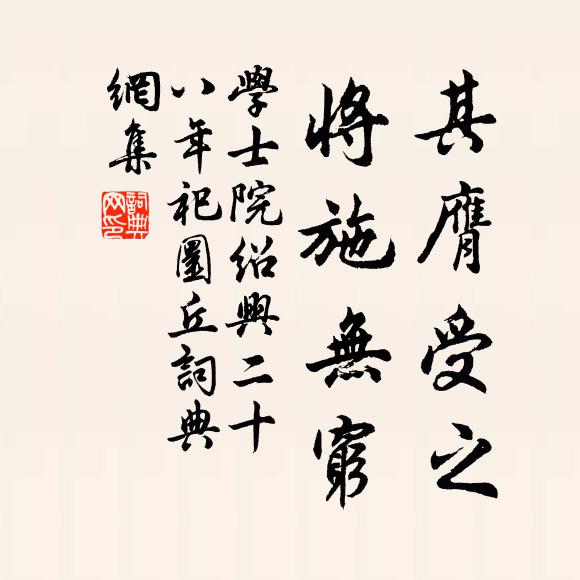 其膺受之
將施無窮
學士院紹興二十
八年祀圜丘詞典
網集
詞典
网印